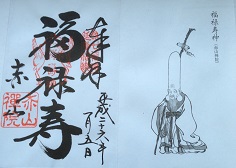 奉拝
平成二十六年
一月五日
福禄寿
赤山禅院
福禄寿神